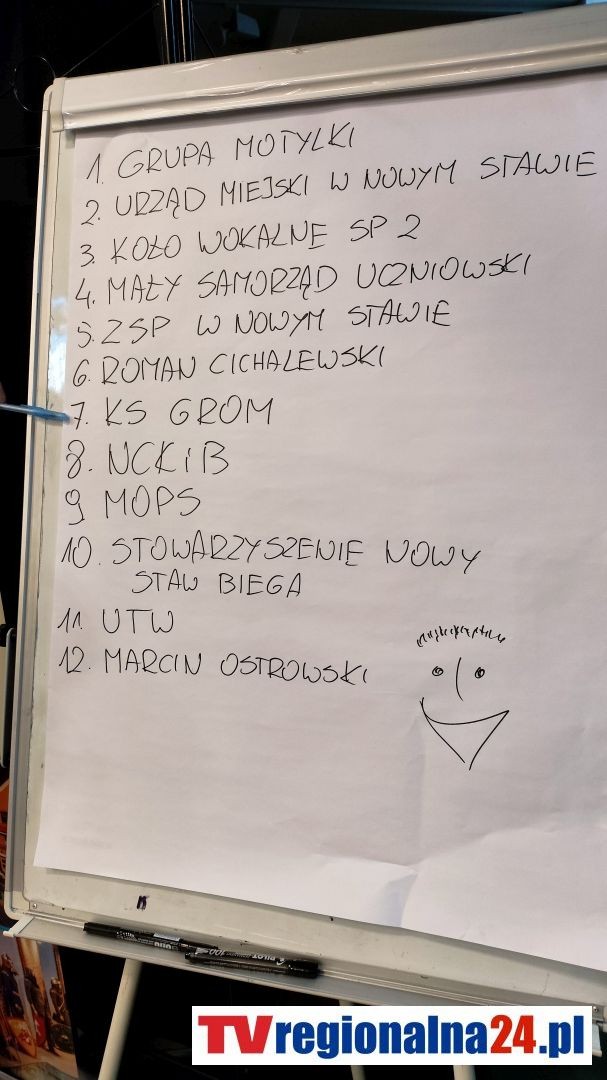 1. GRUPA MOTYLKI
2. URZĄD MIEJSKI W NOWYM STAWIE
3. KOŁO WOKALNE SP 2
4. MAŁY SAMORZĄD UCZNIOWSKI
5. ZSP W NOWYM STAWIE
6. ROMAN CICHALEWSKI
7. KS GROM
8. NCKiB
9 MOPS
10. STOWARZYSZENIE NOWY
STAW BIEGA
11. UTW
12. MARCIN OSTROWSKI
TVregionalna24.pl